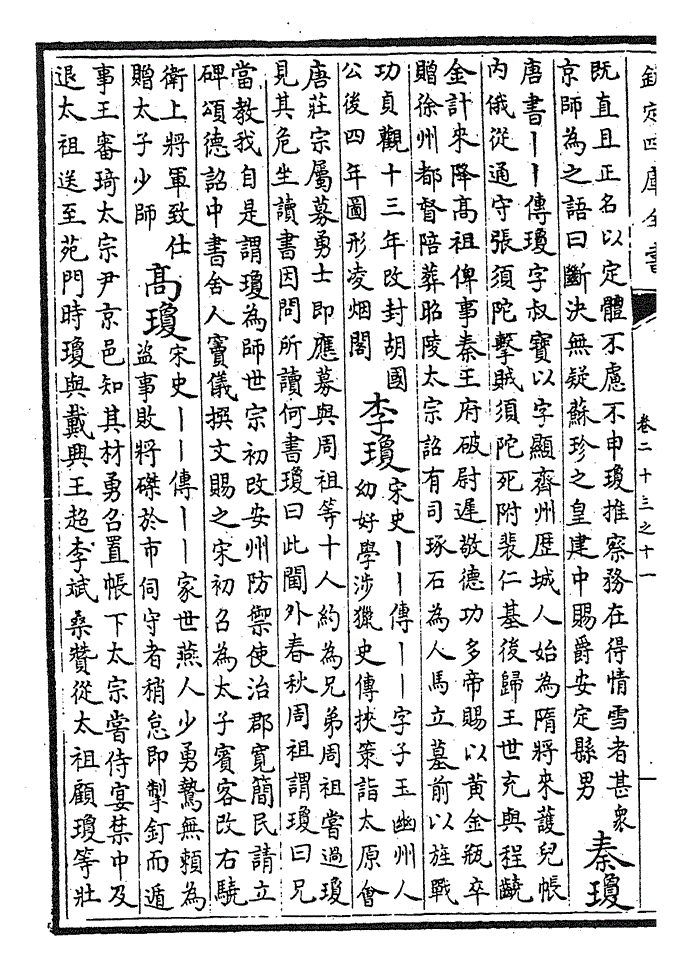 欽定四庫全書
卷二十三之十一
既直且正名以定體不慮不申瓊推察務在得情雪者甚衆
京師為之語曰斷決無疑蘇珍之皇建中賜爵安定縣男
秦瓊
唐書丨丨傳瓊字叔寶以字顯齊州歴城人始為隋將來護兒帳
内俄從通守張須陀擊賊須陀死附裴仁基後歸王世充與程齩
金計來降髙祖俾事秦王府破尉遲敬德功多帝賜以黄金瓶卒
贈徐州都督陪葬昭陵太宗詔有司琢石為人馬立墓前以旌戰
功貞觀十三年改封胡國
公後四年圖形凌烟閣
李瓊
宋史丨丨傳丨丨字子玉幽州人
幼好學涉獵史傳挾策詣太原會
唐莊宗屬募勇士即應募與周祖等十人約為兄弟周祖嘗過瓊
見其危坐讀書因問所讀何書瓊曰此閫外春秋周祖謂瓊曰兄
當教我自是謂瓊為師世宗初改安州防禦使治郡寛簡民請立
碑頌德詔中書舍人竇儀撰文賜之宋初召為太子賓客改右驍
衛上將軍致仕
贈太子少師
髙瓊
宋史丨丨傳丨丨家世燕人少勇鷙無賴為
盜事敗將磔於市伺守者稍怠即掣釘而遁
事王審琦太宗尹京邑知其材勇召置帳下太宗嘗侍宴禁中及
退太祖送至苑門時瓊與戴興王超李斌桑贊從太祖顧瓊等壯